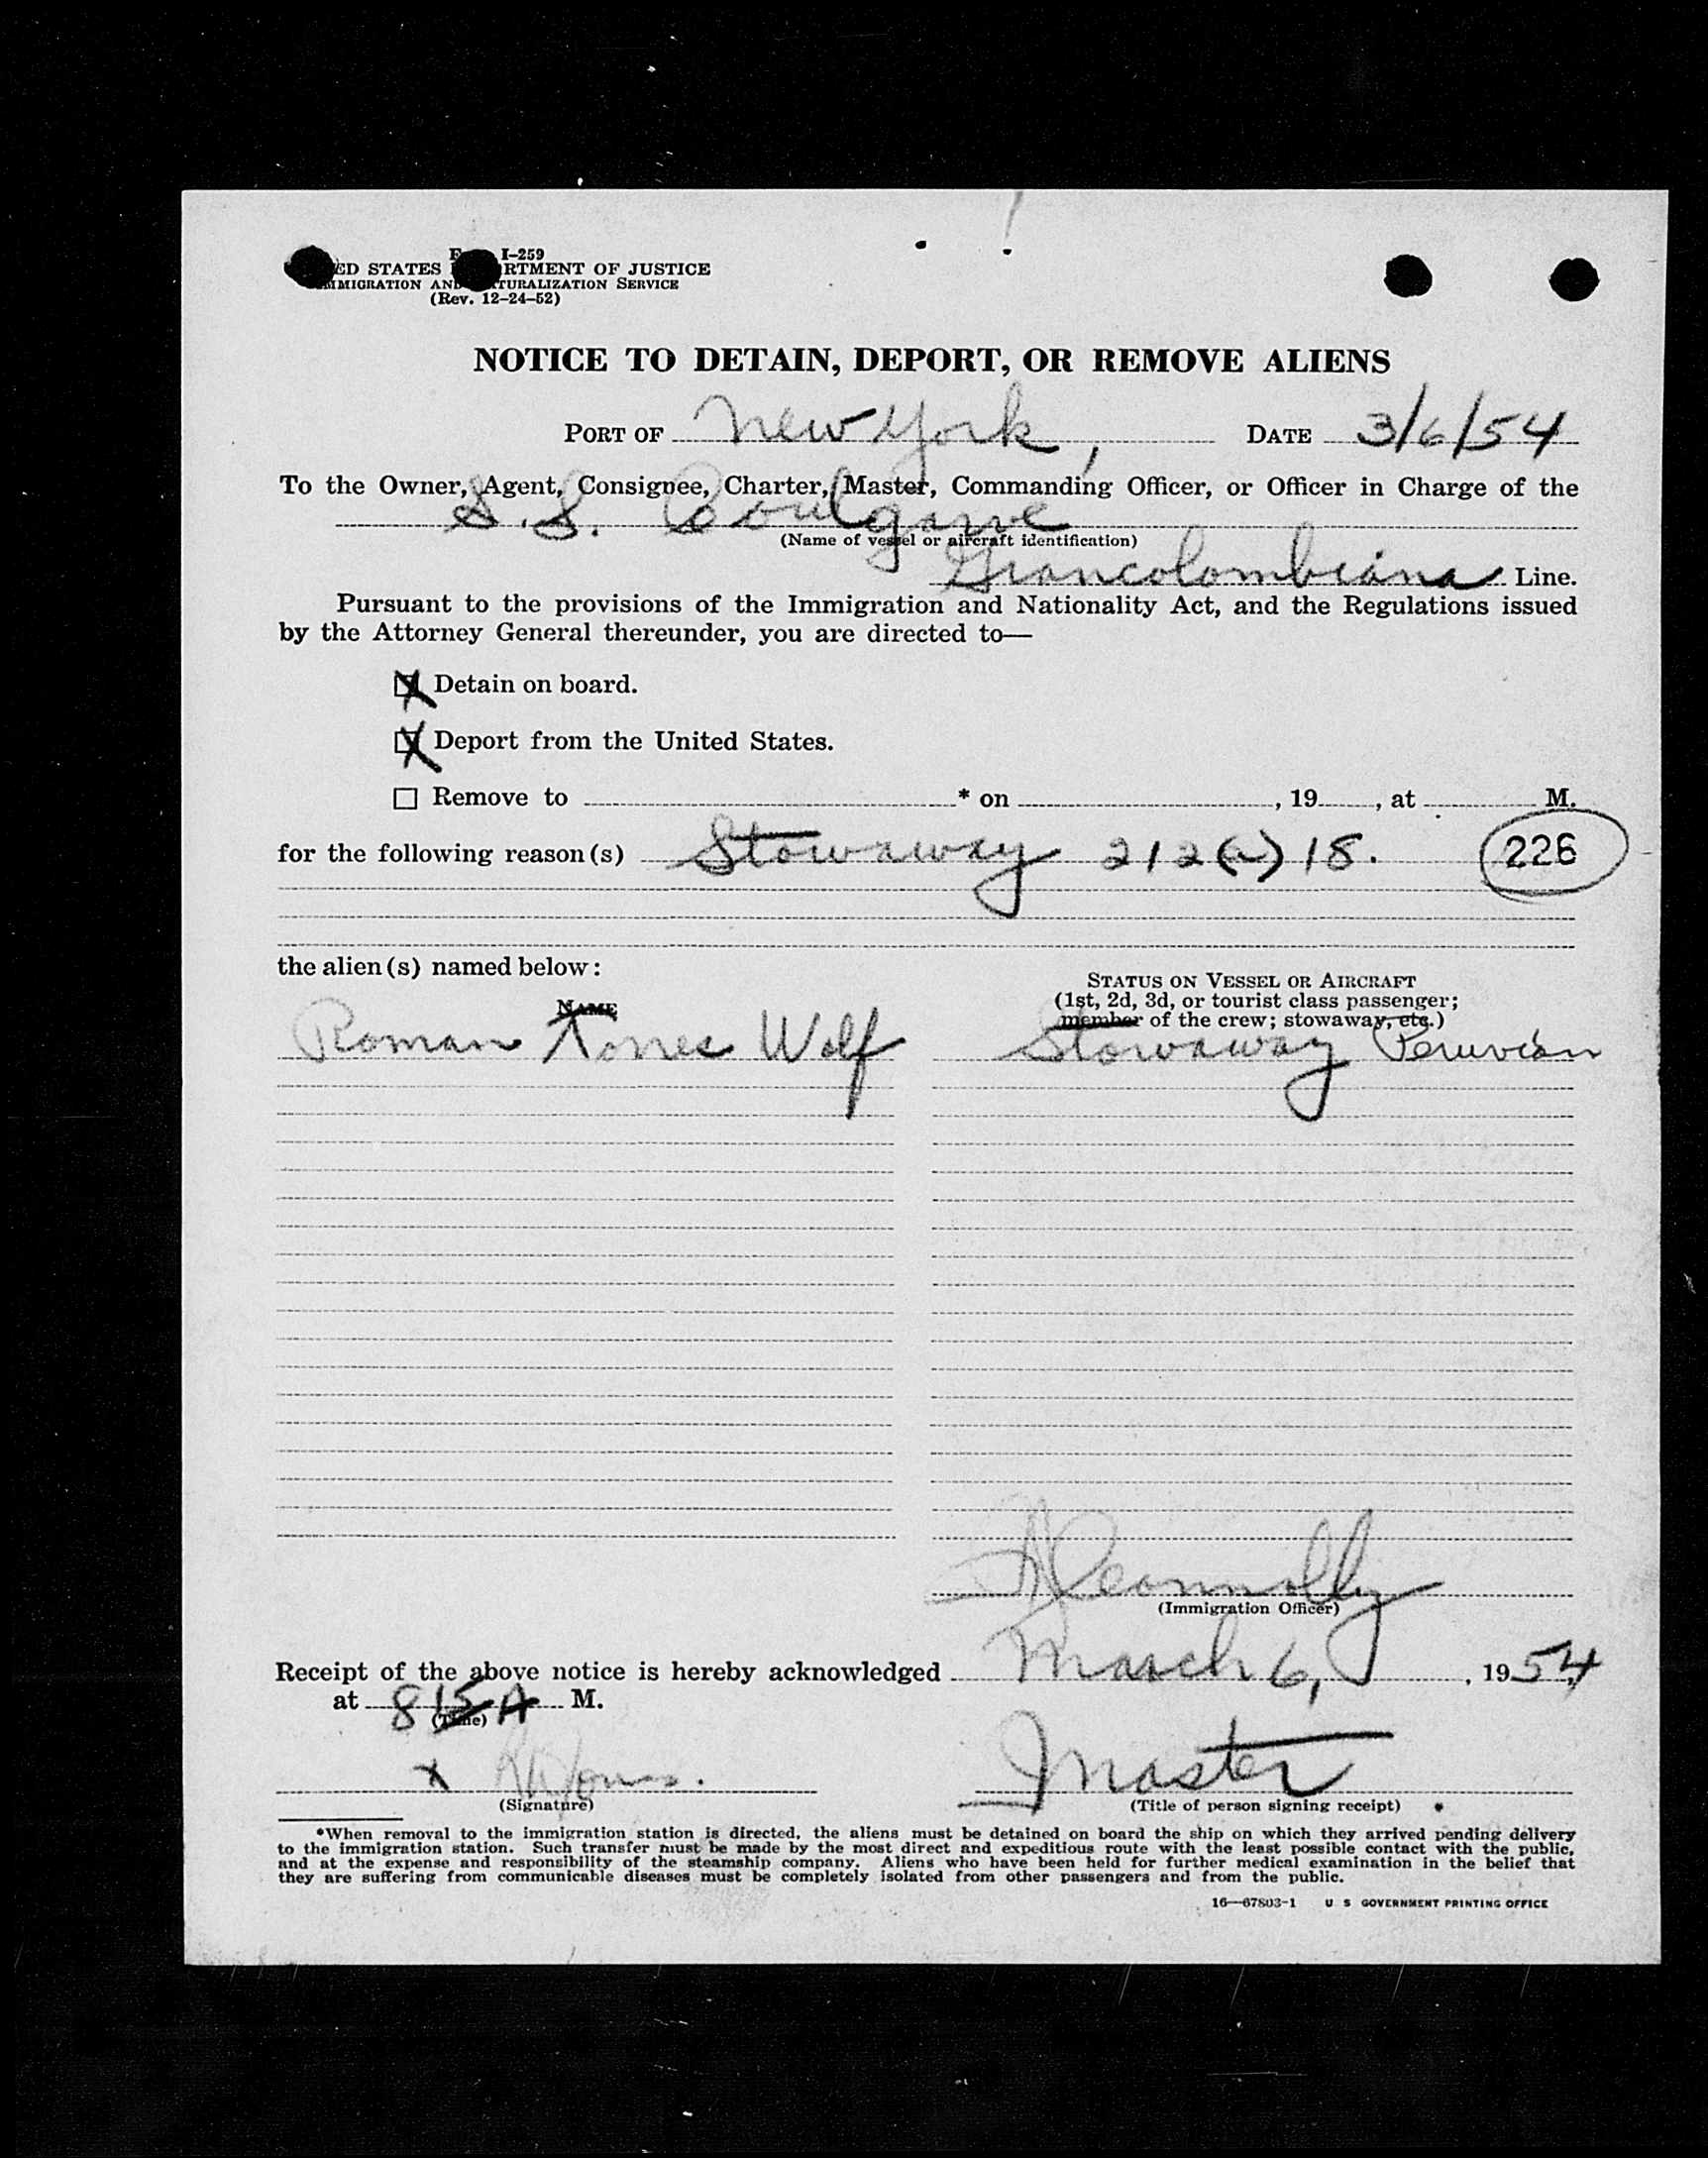 I-259
ED STATES RTMENT OF JUSTICE
IMMIGRATION AND TURALIZATION SERVICE
(Rev. 12-24-52)
NOTICE TO DETAIN, DEPORT, OR REMOVE ALIENS
PORT OF New York, DATE 3/6/54
To the Owner, Agent, Consignee, Charter, Master, Commanding Officer, or Officer in Charge of the
S.S.
(Name of vessel or aircraft identification)
Grancolombiana Line.
Pursuant to the provisions of the Immigration and Nationality Act, and the Regulations issued
by the Attorney General thereunder, you are directed to—
X Detain on board.
X Deport from the United States.
☐ Remove to * on , 19 , at M.
for the following reason(s) Stowaway 212(a)18. 226
the alien(s) named below:
NAME
STATUS ON VESSEL OR AIRCRAFT
(1st, 2d, 3d, or tourist class passenger;
member of the crew; stowaway, etc.)
Roman Wolf Stowaway Peruvian
Connolly
(Immigration Officer)
Receipt of the above notice is hereby acknowledged March 6, , 1954,
at 815 A M.
(Time)
x
(Signature)
Master
(Title of person signing receipt)
*When removal to the immigration station is directed, the aliens must be detained on board the ship on which they arrived pending delivery
to the immigration station. Such transfer must be made by the most direct and expeditious route with the least possible contact with the public,
and at the expense and responsibility of the steamship company. Aliens who have been held for further medical examination in the belief that
they are suffering from communicable diseases must be completely isolated from other passengers and from the public.
16—67803-1 U S GOVERNMENT PRINTING OFFICE